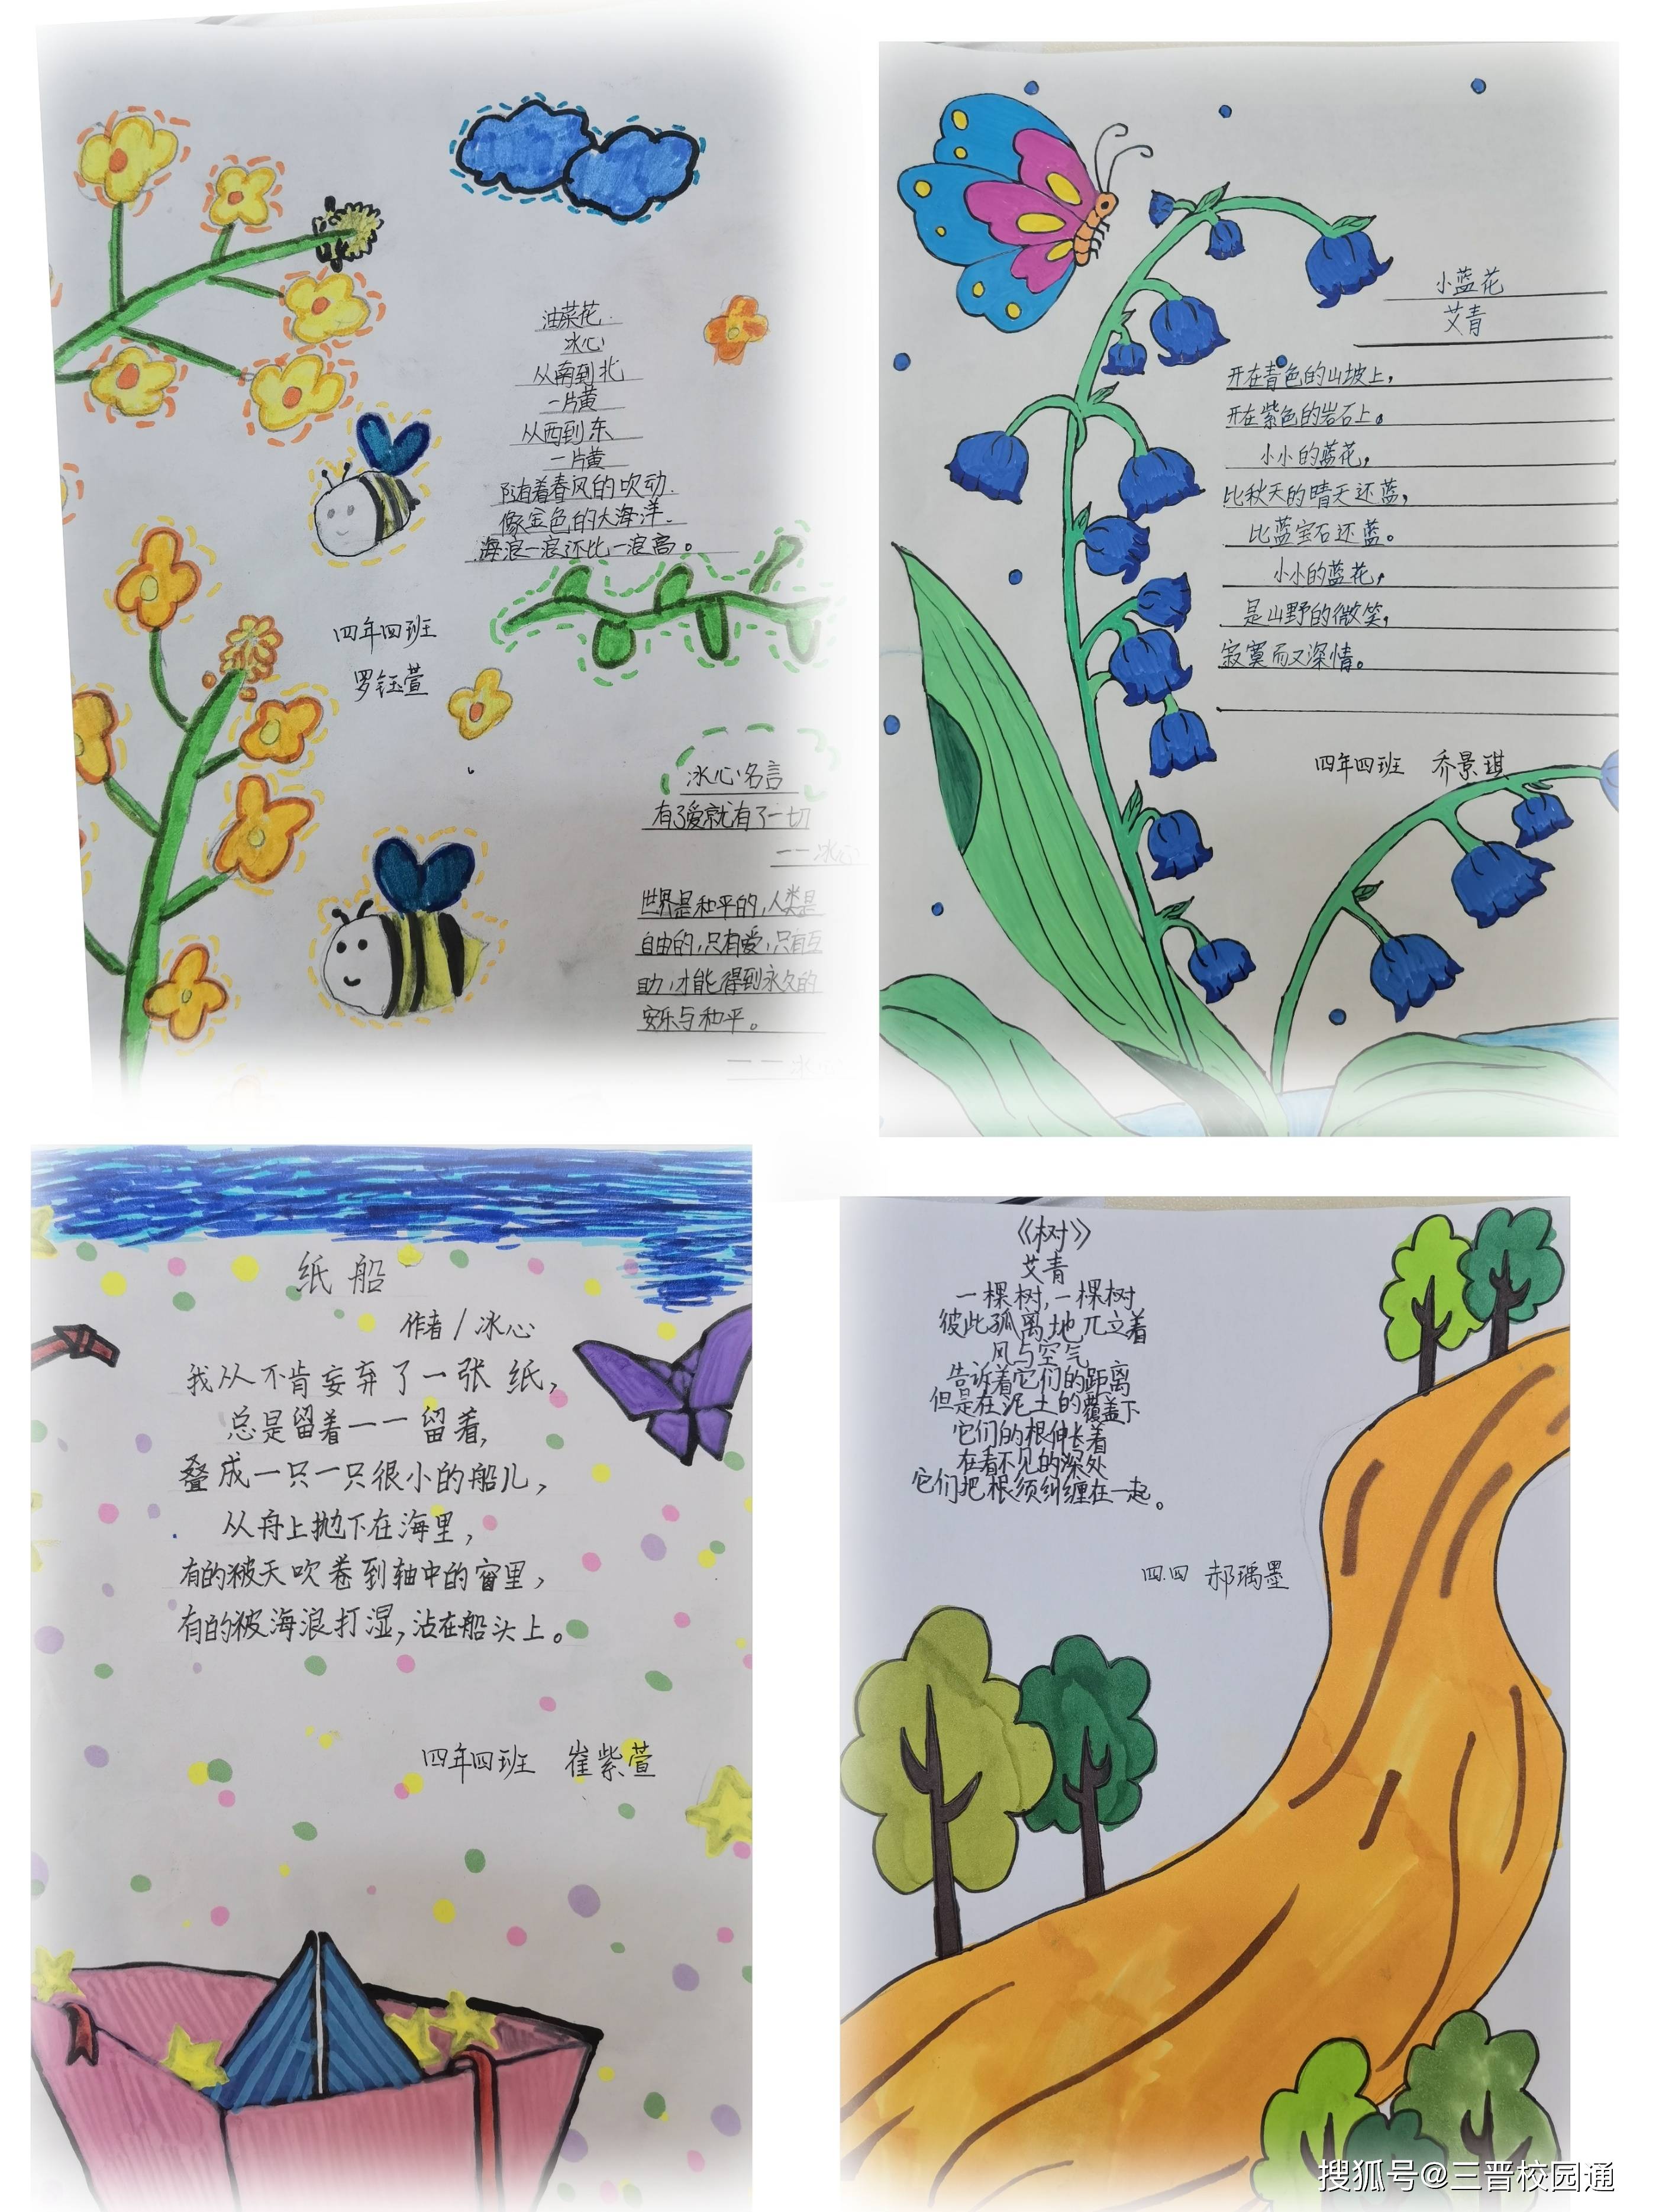 油菜花
冰心
从南到北
一片黄
从西到东
一片黄
随着春风的吹动
像金色的大海洋
海浪一浪还比一浪高。
四年四班
罗钰萱
冰心名言
有了爱就有了一切
——冰心
世界是和平的,人类是
自由的,只有爱,只有互
助,才能得到永久的
安乐与和平。
小蓝花
艾青
开在青色的山坡上,
开在紫色的岩石上。
小小的蓝花,
比秋天的晴天还蓝,
比蓝宝石还蓝。
小小的蓝花,
是山野的微笑,
寂寞而又深情。
四年四班 乔景琪
纸船
作者/冰心
我从不肯妄弃了一张纸,
总是留着——留着,
叠成一只一只很小的船儿,
从舟上抛下在海里,
有的被天吹卷到轴中的窗里,
有的被海浪打湿,沾在船头上。
四年四班 崔紫萱
《树》
艾青
一棵树,一棵树
彼此孤离地兀立着
风与空气
告诉着它们的距离
但是在泥土的覆盖下
它们的根伸长着
在看不见的深处
它们把根须纠缠在一起。
四.四 郝瑀墨
搜狐号@三晋校园通